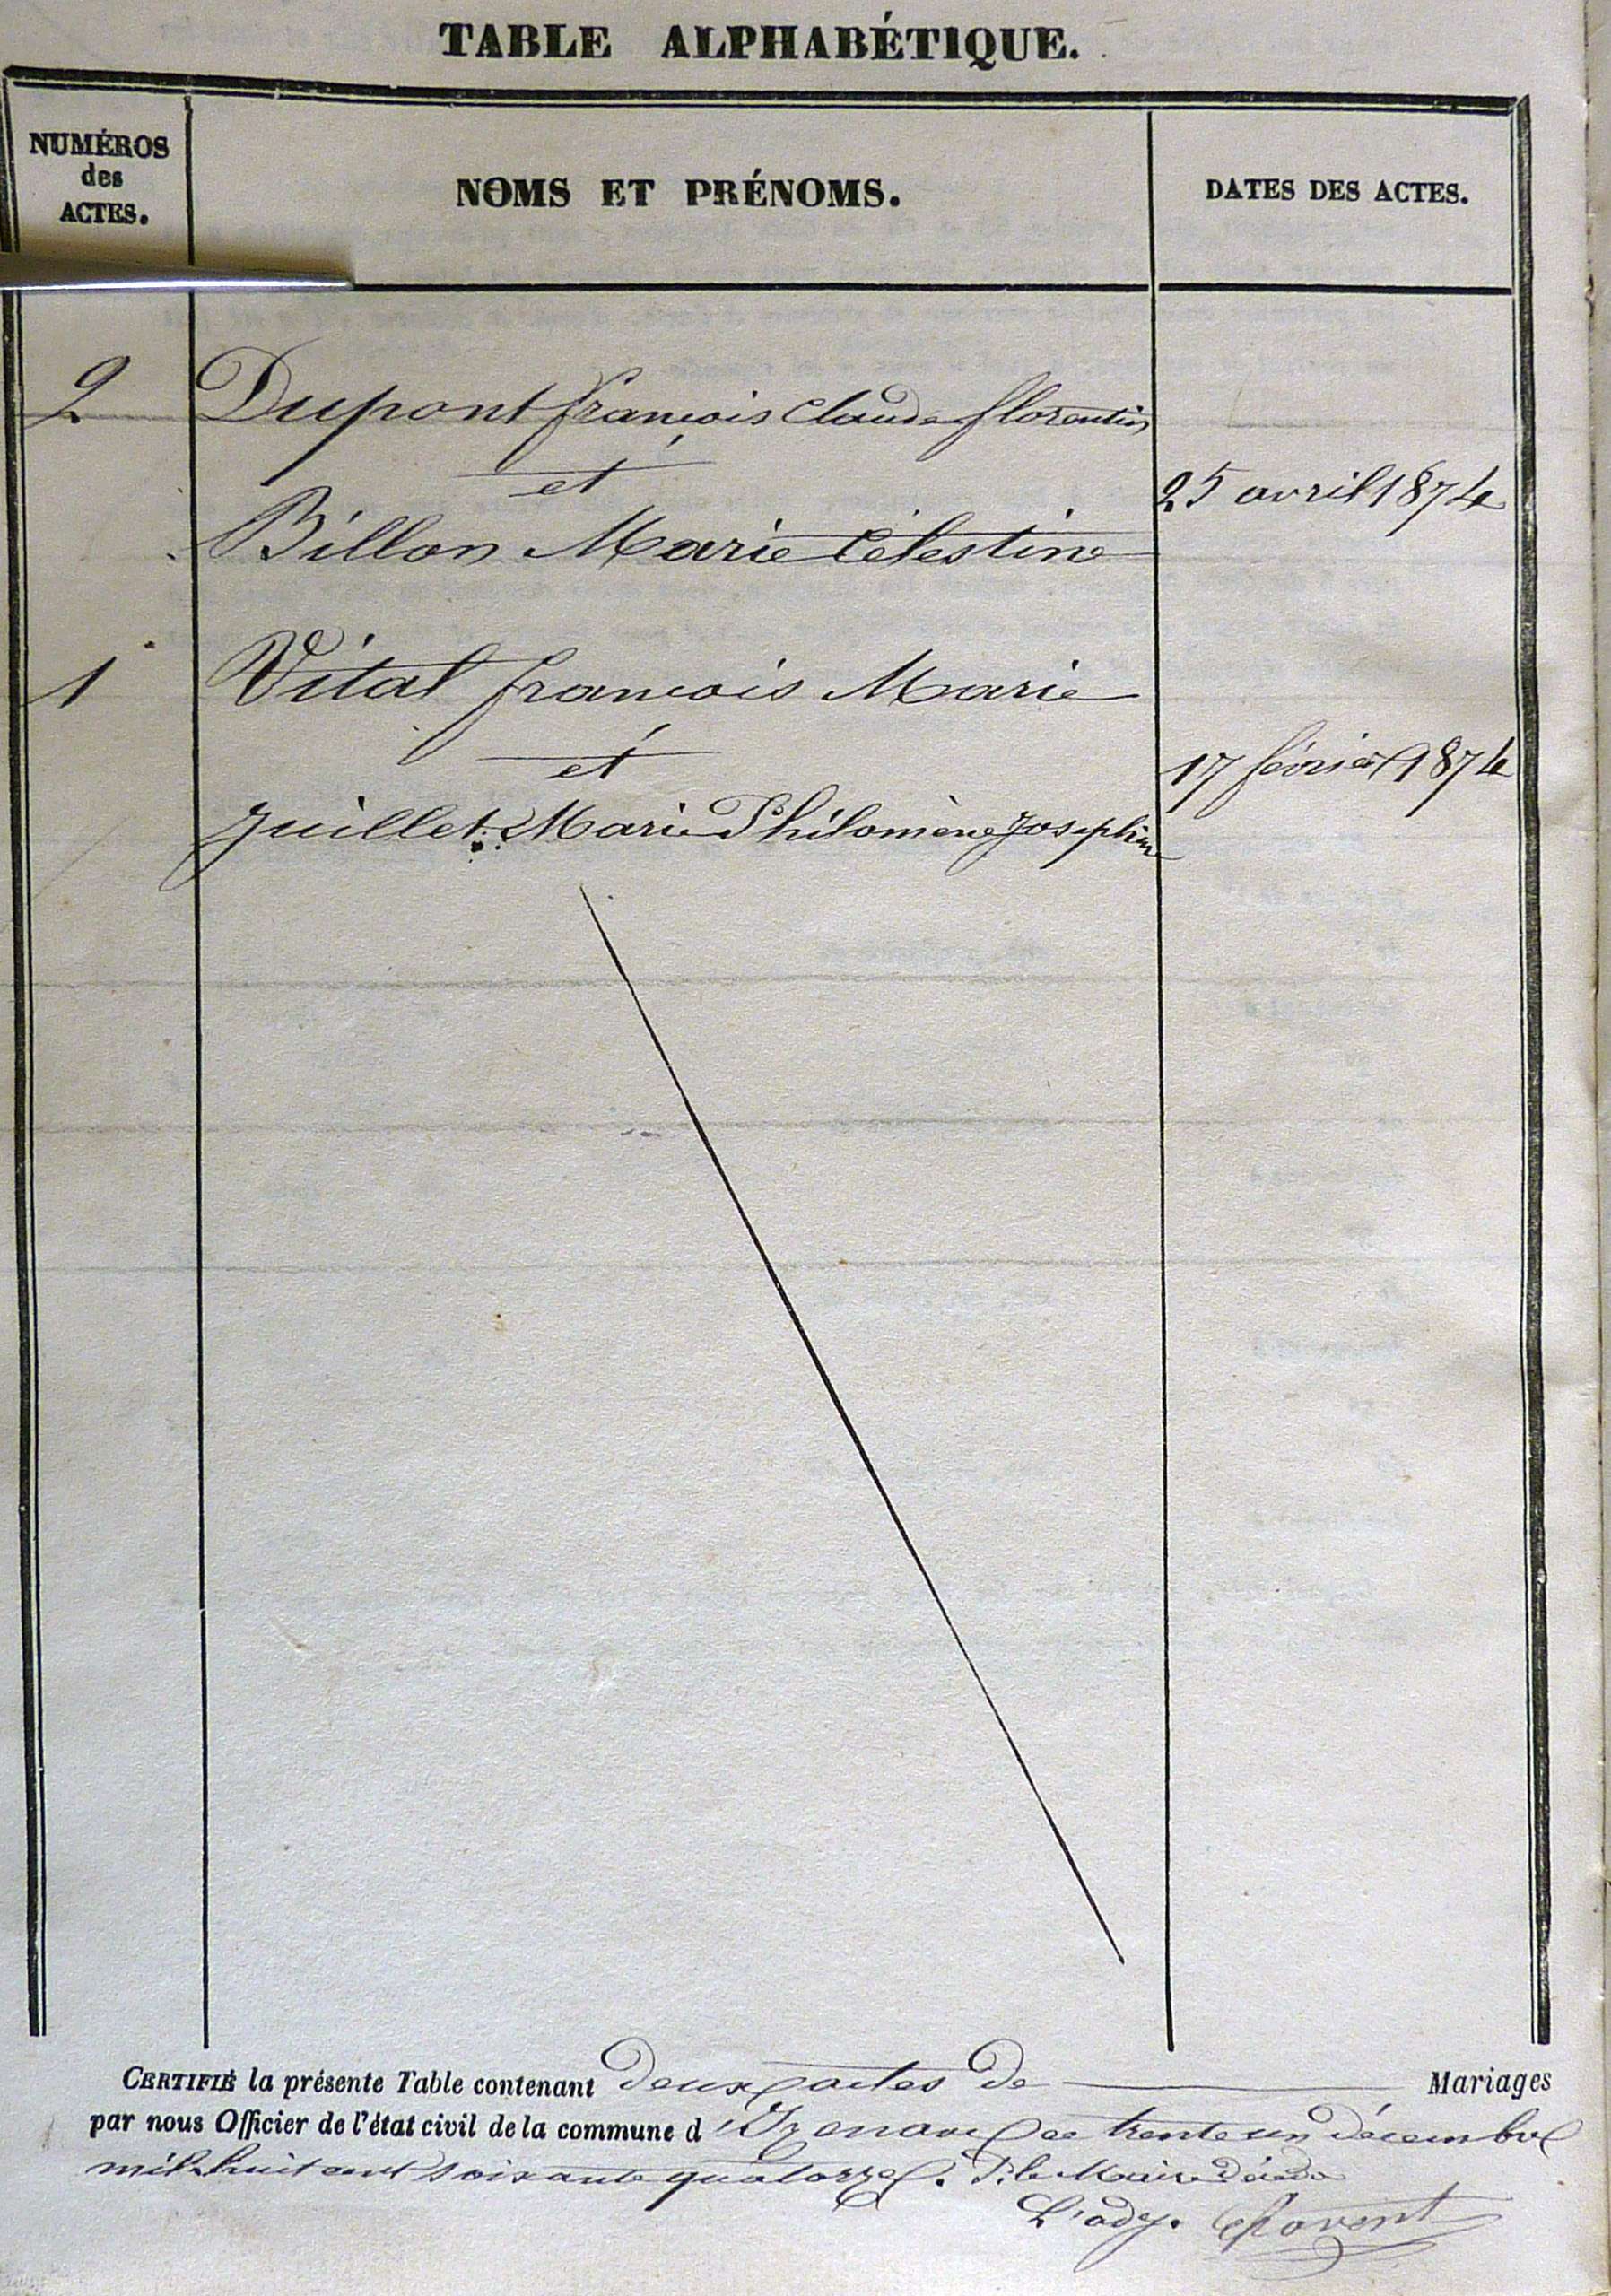 TABLE ALPHABÉTIQUE.
NUMÉROS
des
ACTES.
NOMS ET PRÉNOMS.
DATES DES ACTES.
2 Dupont françois Claude florentin
et
25 avril 1874
Billon Marie Célestine
1 Vital francois Marie
et
17 février 1874
Juillet Marie Philomène Josephine
CERTIFIÉ la présente Table contenant deux actes de Mariages
par nous Officier de l'état civil de la commune d'Izenave ce trente un décembre
mil huit cent soixante quatorze. P. le Maire décédé
L'adj.